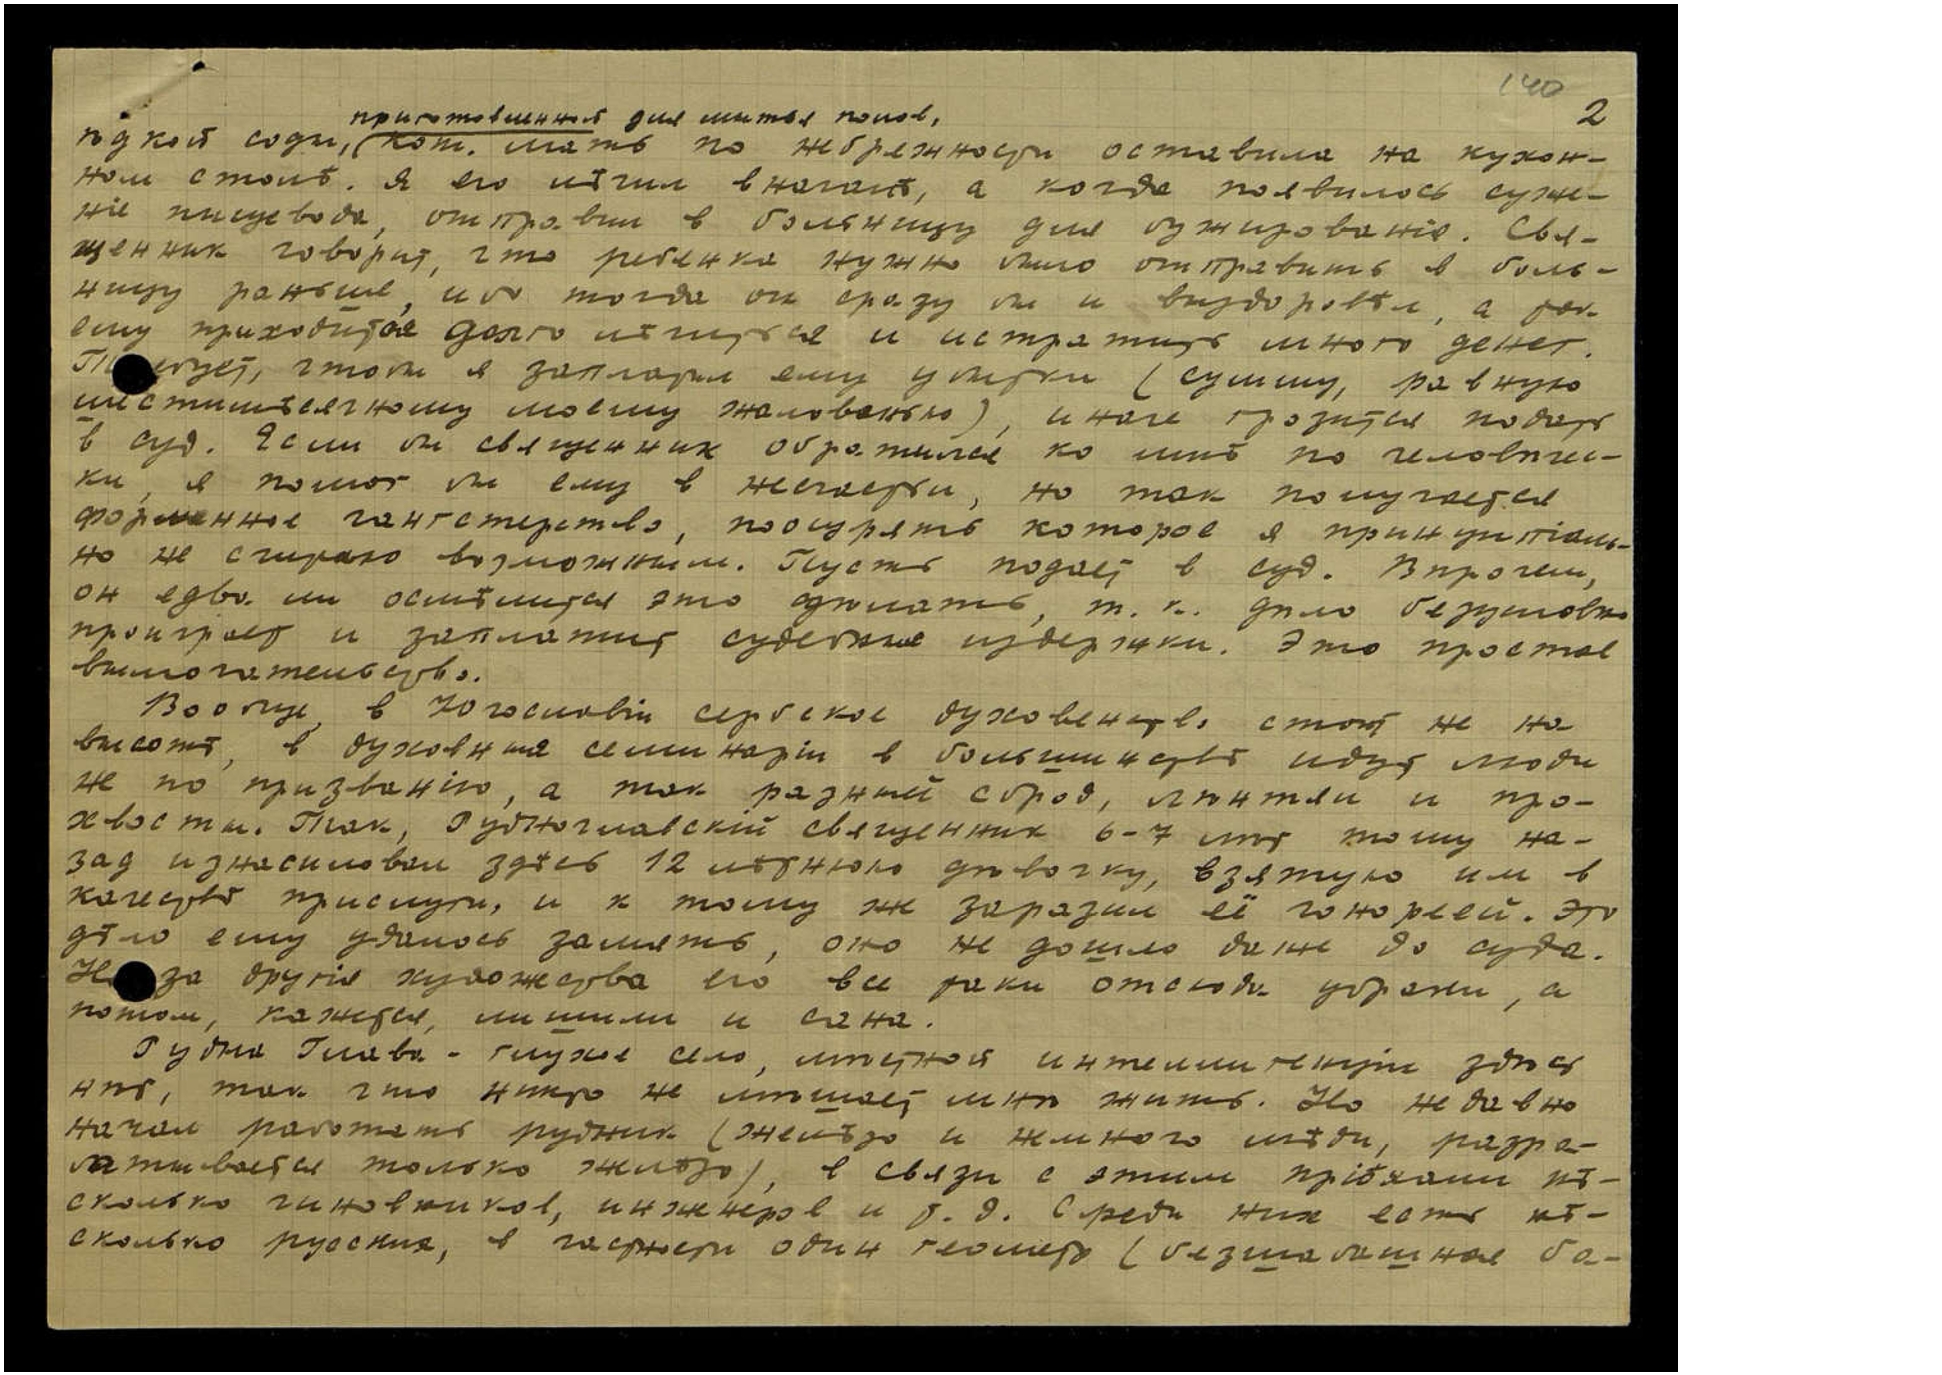 140
2
приготовленной для мытья полов,
ѣдкой соды, кот. мать по небрежности оставила на кухон-
ном столѣ. Я его лѣчил вначалѣ, а когда появилось суже-
ніе пищевода, отправил в больницу для бужированія. Свя-
щенник говорит, что ребенка нужно было отправить в боль-
ницу раньше, ибо тогда он сразу бы и выздоровѣл, а так
ему приходится долго лѣчиться и истратить много денег.
Требует, чтобы я заплатил ему убытки (сумму, равную
шестимѣсячному моему жалованью), иначе грозится подать
в суд. Если бы священник обратился ко мнѣ по человѣчес-
ки, я помог бы ему в несчастьи, но так получается
форменное гангстерство, поощрять которое я принципіаль-
но не считаю возможным. Пусть подает в суд. Впрочем,
он едва ли осмѣлится это сдѣлать, т. к. дѣло безусловно
проиграет и заплатит судебные издержки. Это простое
вымогательство.
Вообще, в Югославіи сербское духовенство стоит не на
высотѣ, в духовныя семинаріи в большинствѣ идут люди
не по призванію, а так разный сброд, лѣнтяи и про-
хвосты. Так, Рудноглавскій священник 6-7 лѣт тому на-
зад изнасиловал здѣсь 12 лѣтнюю дѣвочку, взятую им в
качествѣ прислуги, и к тому же заразил её гонореей. Это
дѣло ему удалось замять, оно не дошло даже до суда.
Но за другія художества его все таки отсюда убрали, а
потом, кажется, лишили и сана.
Рудна Глава - глухое село, мѣстной интеллигенціи здѣсь
нѣт, так что никто не мѣшает мнѣ жить. Но недавно
начал работать рудник (желѣзо и немного мѣди, разра-
батывается только желѣзо), в связи с этим пріѣхали нѣ-
сколько чиновников, инженеров и т. д. Среди них есть нѣ-
сколько русских, в частности один геометр (безшабашная ба-